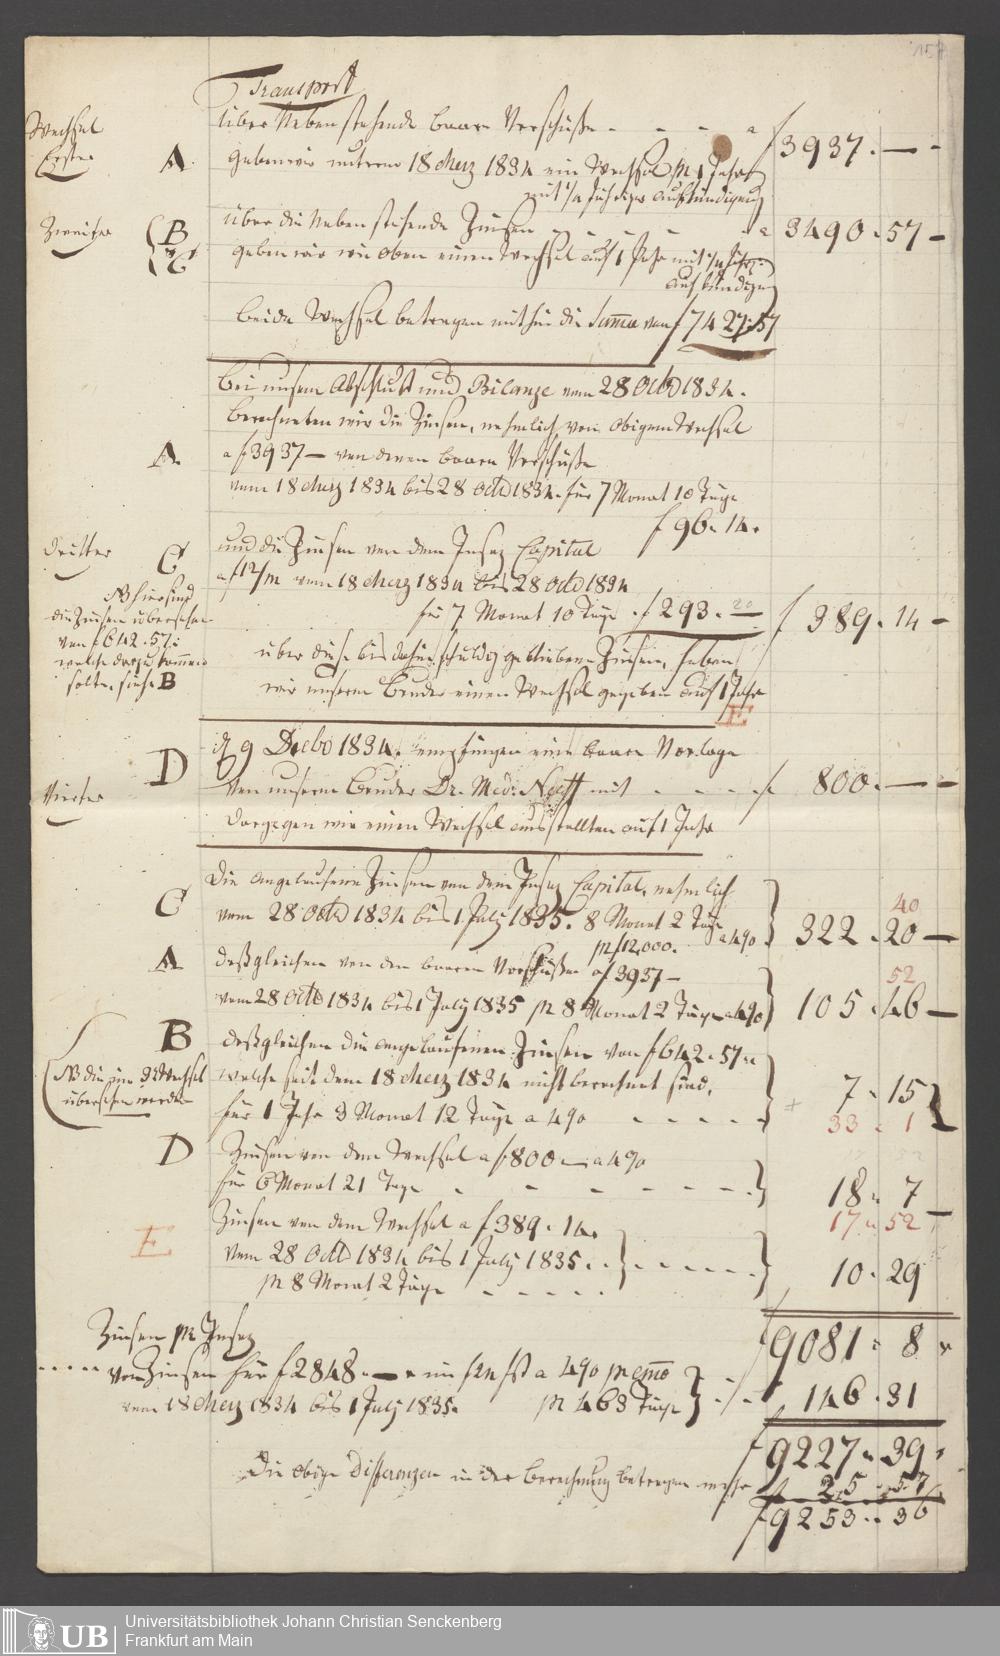 157
Transport
Wechsel
Erster
über Nebenstehende baare Vorschüße - - - a f 3937. — -
A.
geben wir unterm 18 Merz 1834 ein Wechsel pr 1 Jahr
mit 1/4 jähriger Aufkündigung
Zweiter
B
& C
über die Nebenstehende Zinsen - - - - a 3490. 57 -
geben wir wie oben einen Wechsel auf 1 Jahr mit 1/4 jähr.
Aufkündigung
beide Wechsel betragen mithin die Summa von f 7427. 57
Bei unserm Abschluß und Bilanze vom 28 Octb 1834.
berechneten wir die Zinsen, nehmlich von obigem Wechsel
A.
a f 3937 — von denen baaren Vorschüße
vom 18 Merz 1834 bis 28 Octb 1834. für 7 Monat 10 Tage
f 96. 14.
Dritter
C
und die Zinsen von dem Insaz Capital
a f 12/m vom 18 Merz 1834 bis 28 Octb 1834
für 7 Monat 10 Tage . f 293. 20 —
f 389. 14 -
NB hier sind
die Zinsen übersehen
von f 642. 57.
welche dazu kommen
sollte, siehe B
über diese bis dahin schuldig gebliebene Zinsen, haben
wir unserm Bruder einen Wechsel gegeben auf 1 Jahr
E
D
d 9 Decbr 1834. empfingen eine baare Vorlage
Vierter
von unserm Bruder Dr. Med: Neeff mit - - - - f 800. — -
dargegen wir einen Wechsel ausstellten auf 1 Jahr
C
Die angelaufene Zinsen von dem Insaz Capital, nehmlich
vom 28 Octb 1834 bis 1 July 1835. 8 Monat 2 Tage
pr f 12,000. a 4%
40
322. 20 —
A
deßgleichen von den baaren Vorschüßen a f 3937 —
vom 28 Octb 1834 bis 1 July 1835 pr 8 Monat 2 Tage a 4%
52
105. 46 —
B
deßgleichen die angelaufenen Zinsen von f 642. 57
NB die im 3t Wechsel
übersehen worden
welche seit dem 18 Merz 1834 nicht berechnet sind,
für 1 Jahr 3 Monat 12 Tage a 4% - - - - -
+ 7. 15
33. 1
D
Zinsen von dem Wechsel a f 800 — a 4%
für 6 Monat 21 Tage - - - - - -
18. 7
17. 52
E
Zinsen von dem Wechsel a f 389. 14.
vom 28 Octb 1834 bis 1 July 1835. - - - - - 10. 29
pr 8 Monat 2 Tage - - - - -
f 9081. 8
Zinsen pr Insaz
von Zinsen für f 2848. — a 4%
vom 18 Merz 1834 bis 1 July 1835. pr 463 Tage
146. 31
f 9227. 39
Die obige Differenzen in der Berechnung betragen mehr f 25. 57
f 9253. 36
UB
Universitätsbibliothek Johann Christian Senckenberg
Frankfurt am Main